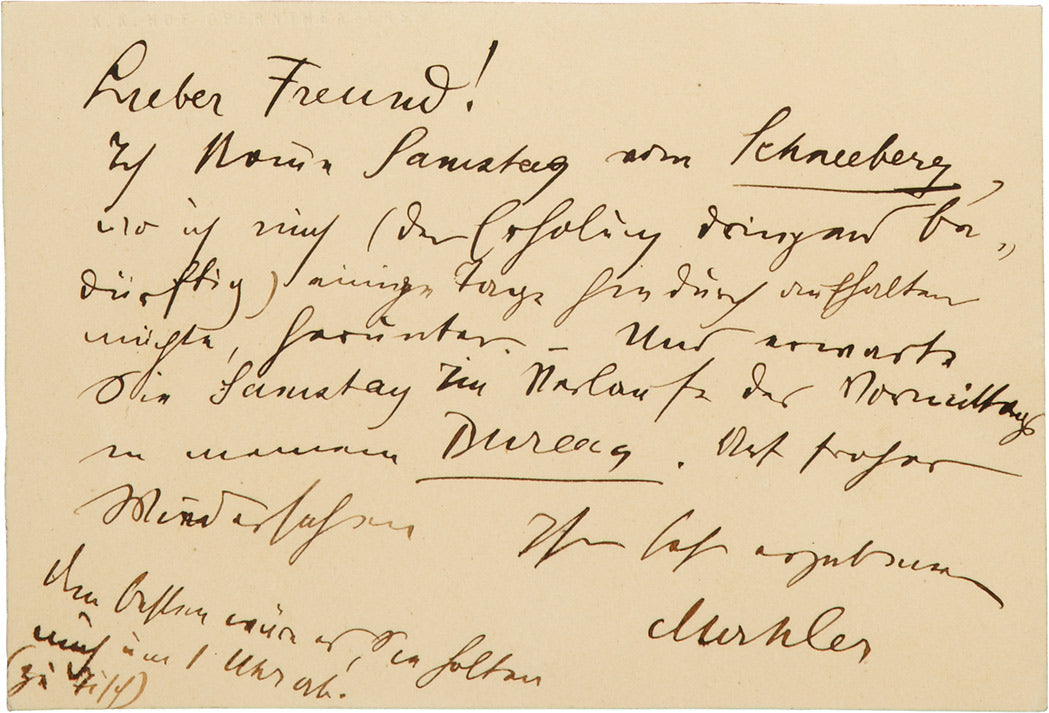 Lieber Freund!
Ich komme Samstag vom Schneeberg,
wo ich mich (der Erholung dringend be„
dürftig) einige Tage hindurch aufhalten
möchte, herunter. – Und erwarte
Sie Samstag im Verlaufe des Vormittags
in meinem Bureau. Auf frohes
Wiedersehen
Ihr sehr ergebener
Mahler
Am besten wäre es, Sie holten
mich um 1 Uhr ab.
(zu Tisch)